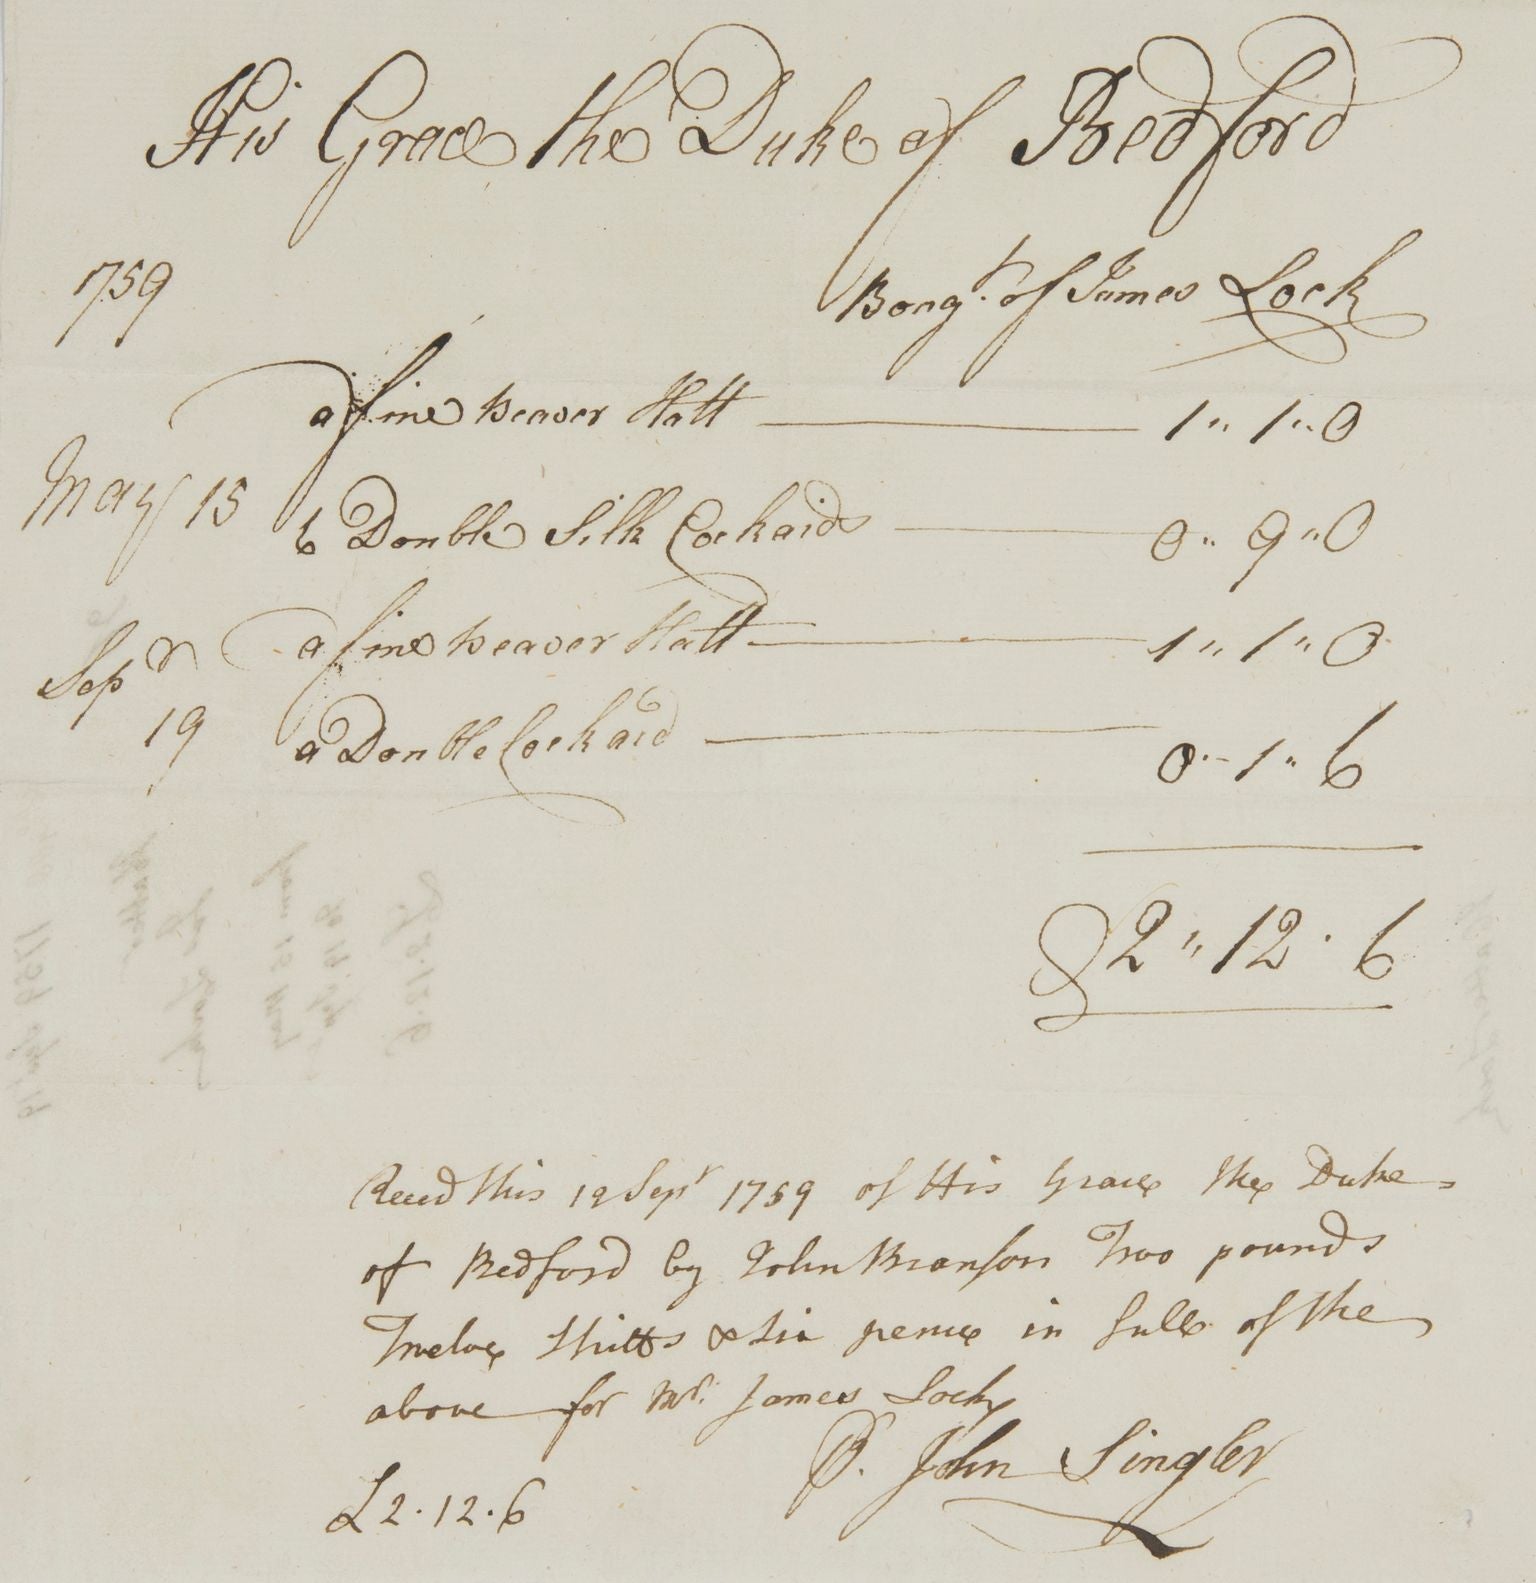 His Grace the Duke of Bedford
1759
Boug.t of James Lock
a fine beaver Hatt 1 " 1 " 0
May 15
6 Double Silk Cockaids 0 " 9 " 0
a fine beaver Hatt 1 " 1 " 0
Sepr
19
a Double Cockaid 0 " 1 " 6
£2 " 12 . 6
Reced this 19 Sepr 1759 of His Grace the Duke
of Bedford by John Branson Two pounds
Twelve Shills & Six pence in full of the
above for Mr. James Lock
P. John Singler
£2.12.6